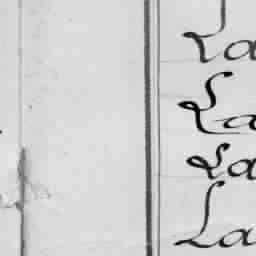 La
La
La
La